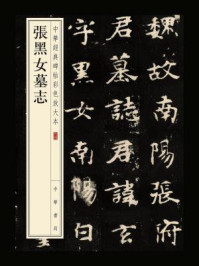 魏故南陽張府
君墓誌君諱玄
字黑女南陽白
中華經典碑帖彩色放大本
張黑女墓志
中華書局